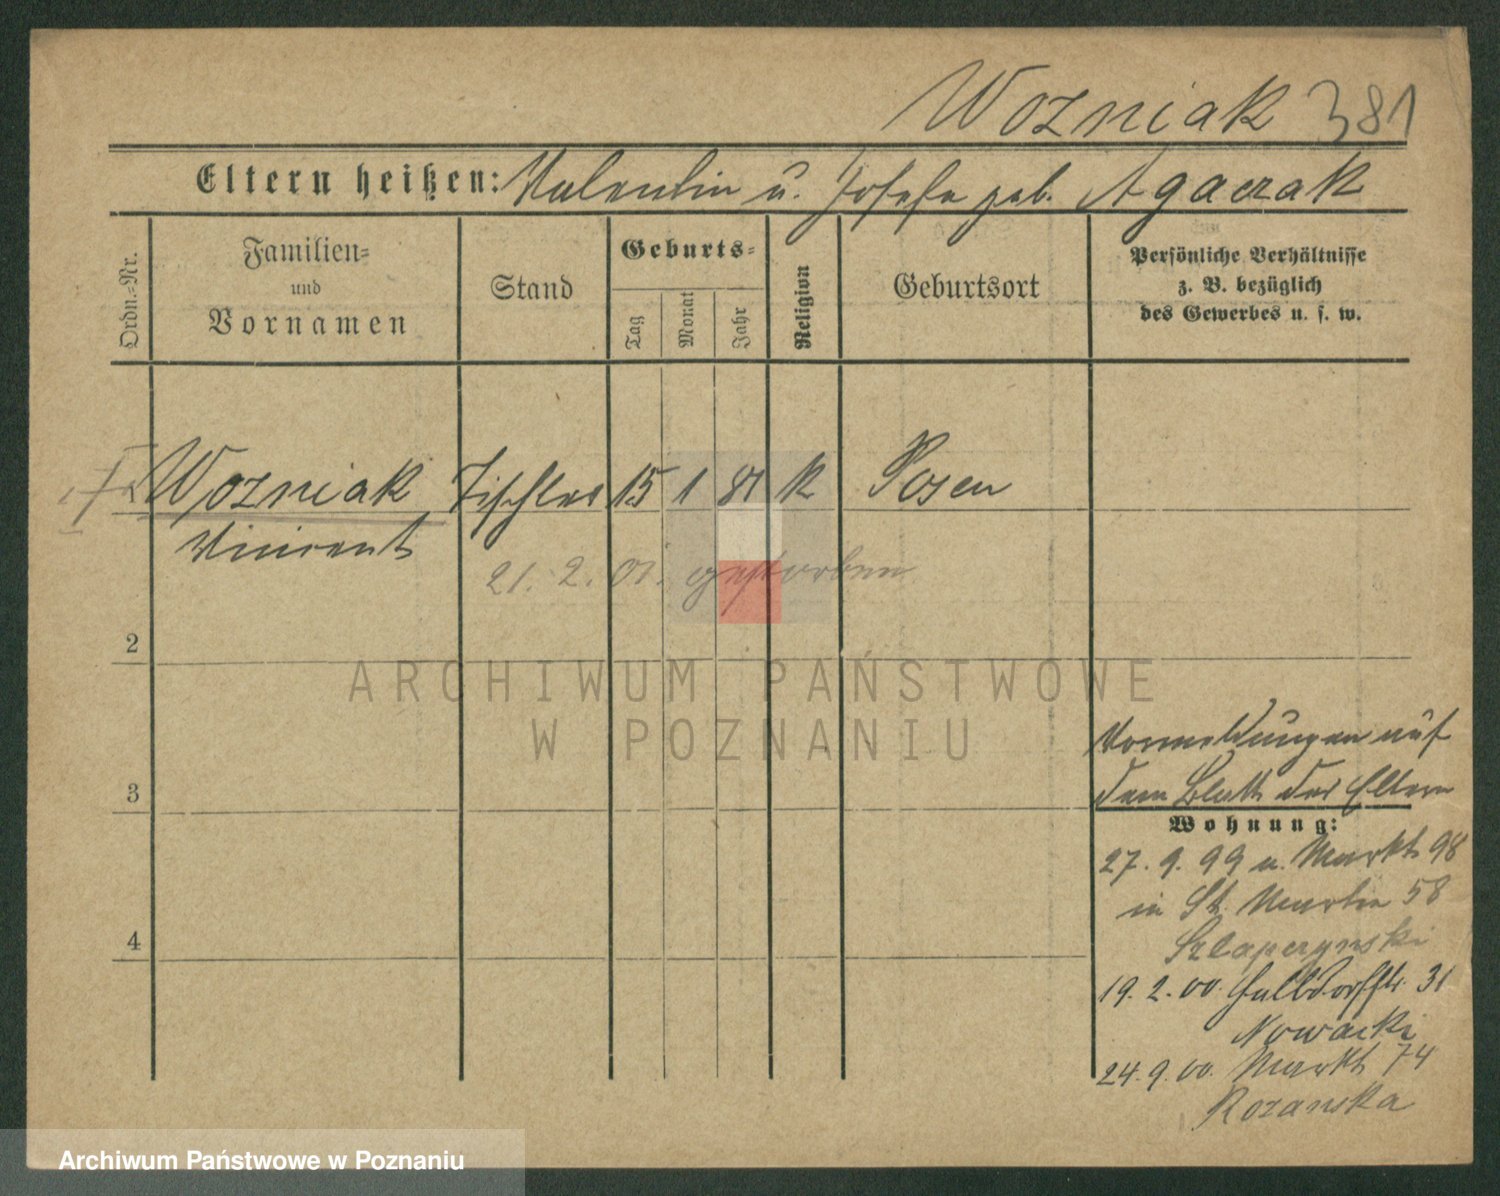 Wozniak 381
Eltern heißen: Valentin u. Josefa geb. Agaczak
Ordn.-Nr.
Familien-
und
Vornamen
Stand
Geburts-
Tag
Monat
Jahr
Religion
Geburtsort
Persönliche Verhältnisse
z. B. bezüglich
des Gewerbes u. s. w.
Wozniak Tischler 15 1 81 K Posen
Vincent
21. 2. 01. gestorben
2
ARCHIWUM PAŃSTWOWE
W POZNANIU
Vormeldungen auf
3
dem Blatt der Eltern
Wohnung:
27. 9. 99 u. Markt 98
in St. Martin 58
4
Szlapczynski
19. 2. 00. Halbdorfstr. 31
Nowacki
24. 9. 00. Markt 74
Rozanska
Archiwum Państwowe w Poznaniu